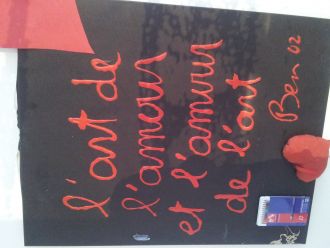 l'art de
l'amour
et l'amour
de l'art
Ben 02